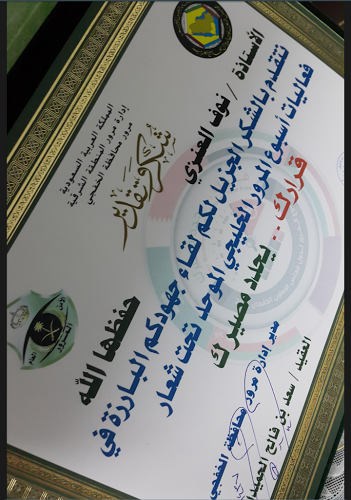 المملكة العربية السعودية
إدارة مرور المنطقة الشرقية
مرور محافظة الخفجي
شكر وتقدير
الأستاذة / نوف العنزي
حفظها الله
نتقدم بالشكر الجزيل لكم لقاء جهودكم البارزة في
فعاليات أسبوع المرور الخليجي الموحد تحت شعار
قرارك .. يحدد مصيرك
مدير إدارة مرور محافظة الخفجي
العقيد / سعد بن فالح
المرور